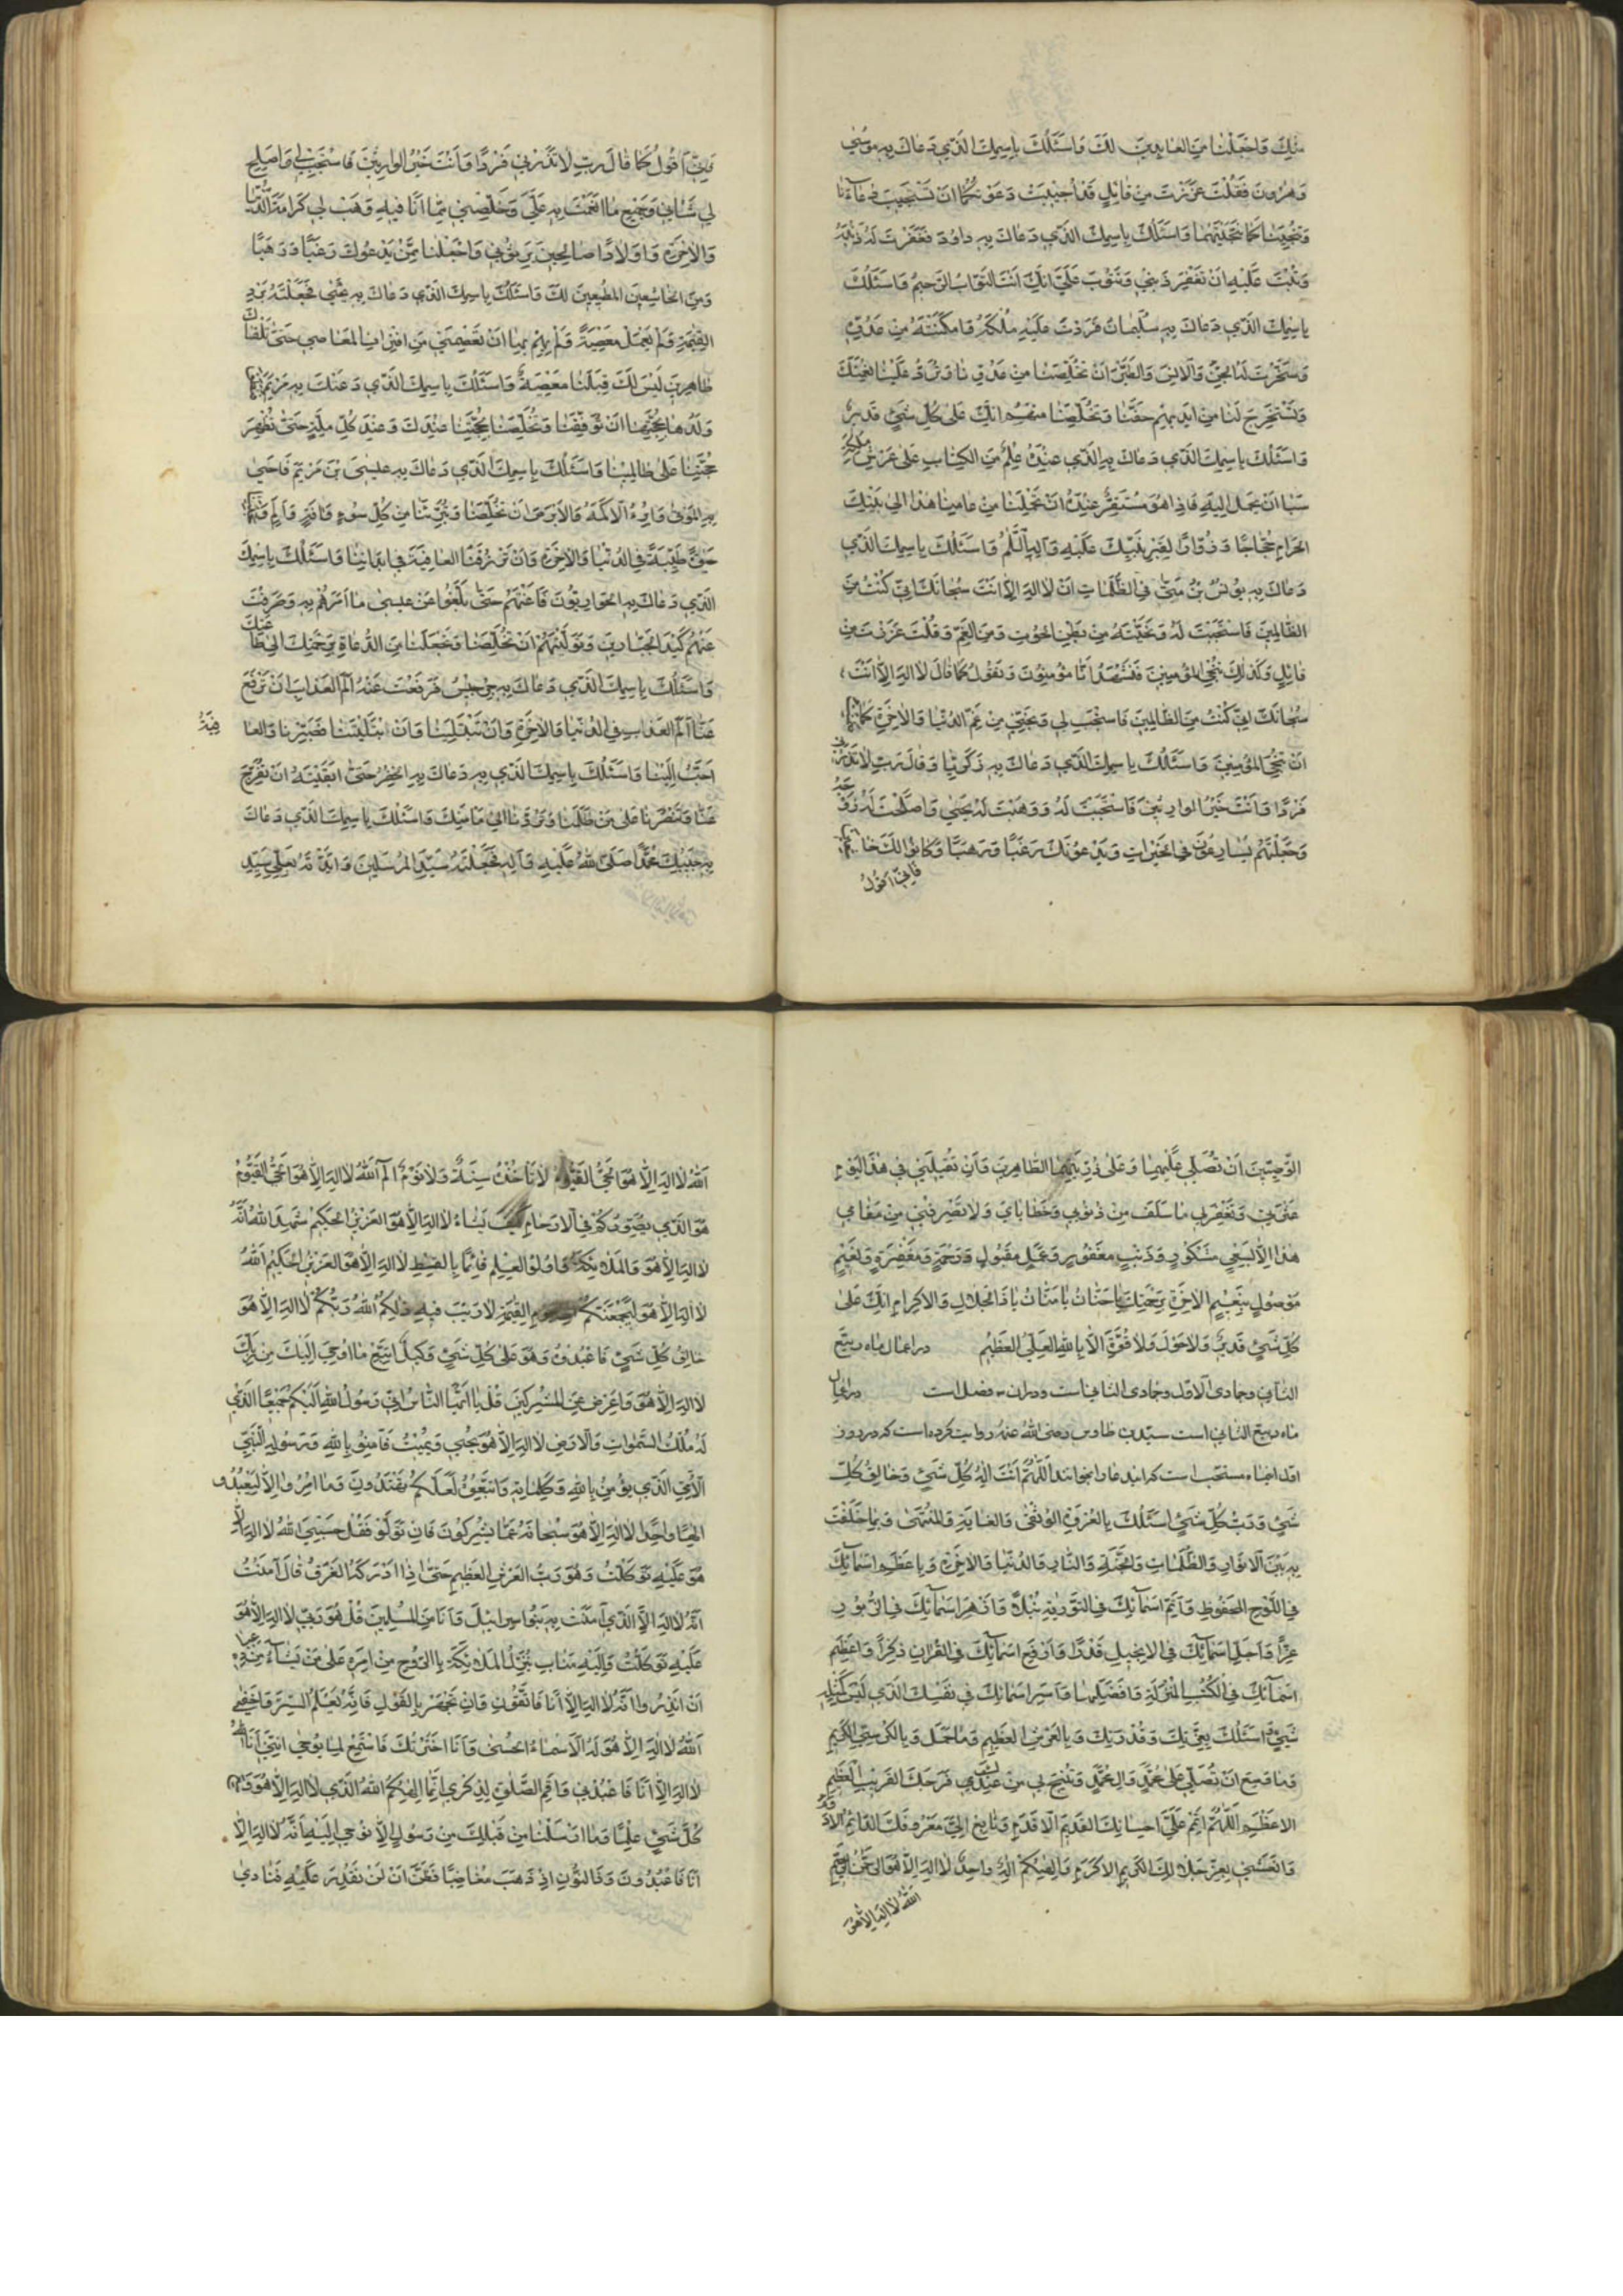 مِنْكَ وَاجْعَلْنَا مِنَ العَابِدِينَ لَكَ وَاَسْئَلُكَ بِاسْمِكَ الَّذِي دَعَاكَ بِهِ مُوسٰى
وَهٰرُونَ فَقُلْتَ عَزَزْتَ مِنْ قَائِلٍ قَدْ اُجِيبَتْ دَعْوَتُكُمَا اَنْ تَسْتَجِيبَ دُعَآءَنَا
وَتُنْجِيَنَا كَمَا نَجَّيْتَهُمَا وَاَسْئَلُكَ بِاسْمِكَ الَّذِي دَعَاكَ بِهِ دَاوُدَ فَغَفَرْتَ لَهُ ذَنْبَهُ
وَتُبْتَ عَلَيْهِ اَنْ تَغْفِرَ ذَنْبِي وَتَتُوبَ عَلَيَّ اِنَّكَ اَنْتَ التَّوَّابُ الرَّحِيمُ وَاَسْئَلُكَ
بِاسْمِكَ الَّذِي دَعَاكَ بِهِ سُلَيْمَانُ فَرَدَدْتَ عَلَيْهِ مُلْكَهُ وَاَمْكَنْتَهُ مِنْ عَدُوِّهِ
وَسَخَّرْتَ لَهُ الجِنَّ وَالاِنْسَ وَالطَّيْرَ اَنْ تُخَلِّصَنَا مِنْ عَدُوِّنَا وَتَرُدَّ عَلَيْنَا نِعْمَتَكَ
وَتَسْتَخْرِجَ لَنَا مِنْ اَيْدِيهِمْ حَقَّنَا وَتُخَلِّصَنَا مِنْهُمْ اِنَّكَ عَلٰى كُلِّ شَيْءٍ قَدِيرٌ
وَاَسْئَلُكَ بِاسْمِكَ الَّذِي دَعَاكَ بِهِ الَّذِي عِنْدَهُ عِلْمٌ مِنَ الكِتَابِ عَلٰى عَرْشِ مَلِكَةِ
سَبَا اَنْ تُحْمَلَ اِلَيْهِ فَاِذَا هُوَ مُسْتَقِرٌّ عِنْدَهُ اَنْ تَحْمِلَنَا مِنْ عَامِنَا هٰذَا اِلٰى بَيْتِكَ
الحَرَامِ حُجَّاجًا وَزُوَّارًا لِقَبْرِ نَبِيِّكَ عَلَيْهِ وَآلِهِ السَّلٰمُ وَاَسْئَلُكَ بِاسْمِكَ الَّذِي
دَعَاكَ بِهِ يُونُسُ بْنُ مَتّٰى فِي الظُّلُمَاتِ اَنْ لَا اِلٰهَ اِلَّا اَنْتَ سُبْحَانَكَ اِنِّي كُنْتُ مِنَ
الظَّالِمِينَ فَاسْتَجَبْتَ لَهُ وَنَجَّيْتَهُ مِنْ بَطْنِ الحُوتِ وَمِنَ الغَمِّ وَقُلْتَ عَزَزْتَ مِنْ
قَائِلٍ وَكَذٰلِكَ نُنْجِي المُؤْمِنِينَ فَنَشْهَدُ اَنَّا مُؤْمِنُونَ وَنَقُولُ كَمَا قَالَ لَا اِلٰهَ اِلَّا اَنْتَ
سُبْحَانَكَ اِنِّي كُنْتُ مِنَ الظَّالِمِينَ فَاسْتَجِبْ لِي وَنَجِّنِي مِنْ غَمِّ الدُّنْيَا وَالاٰخِرَةِ كَمَا
اَنْ تُنْجِيَ المُؤْمِنِينَ وَاَسْئَلُكَ بِاسْمِكَ الَّذِي دَعَاكَ بِهِ زَكَرِيَّا وَقَالَ رَبِّ لَا تَذَرْنِي
فَرْدًا وَاَنْتَ خَيْرُ الوَارِثِينَ فَاسْتَجَبْتَ لَهُ وَوَهَبْتَ لَهُ يَحْيٰى وَاَصْلَحْتَ لَهُ زَوْجَهُ
وَجَعَلْتَهُمْ يُسَارِعُونَ فِي الخَيْرَاتِ وَيَدْعُونَكَ رَغَبًا وَرَهَبًا وَكَانُوا لَكَ خَاشِعِينَ
فَاِنِّي اَقُولُ
فَاِنِّي اَقُولُ كَمَا قَالَ رَبِّ لَا تَذَرْنِي فَرْدًا وَاَنْتَ خَيْرُ الوَارِثِينَ فَاسْتَجِبْ لِي وَاَصْلِحْ
لِي شَانِي وَجَمِيعَ مَا اَنْعَمْتَ بِهِ عَلَيَّ وَخَلِّصْنِي مِمَّا اَنَا فِيهِ وَهَبْ لِي كَرَامَةَ الدُّنْيَا
وَالاٰخِرَةِ وَاَوْلَادًا صَالِحِينَ يَرِثُونِي وَاجْعَلْنَا مِمَّنْ يَدْعُوكَ رَغَبًا وَرَهَبًا
وَمِنَ الخَاشِعِينَ المُطِيعِينَ لَكَ وَاَسْئَلُكَ بِاسْمِكَ الَّذِي دَعَاكَ بِهِ يَحْيٰى فَجَعَلْتَهُ يَرِدُ
القِيٰمَةَ وَلَمْ يَعْمَلْ مَعْصِيَةً وَلَمْ يَهُمَّ بِهَا اَنْ تَعْصِمَنِي مِنِ اقْتِرَافِ المَعَاصِي حَتّٰى نَلْقَاكَ
طَاهِرِينَ لَيْسَ لَكَ قِبَلَنَا مَعْصِيَةٌ وَاَسْئَلُكَ بِاسْمِكَ الَّذِي دَعَتْكَ بِهِ مَرْيَمُ
وَلَدُهَا بِحُجَّتِهَا اَنْ تُوَفِّقَنَا وَتُخَلِّصَنَا بِحُجَّتِنَا عِنْدَكَ وَعِنْدَ كُلِّ مِلَّةٍ حَتّٰى تُظْهِرَ
حُجَّتَنَا عَلٰى ظَالِمِينَا وَاَسْئَلُكَ بِاسْمِكَ الَّذِي دَعَاكَ بِهِ عِيسَى بْنُ مَرْيَمَ فَاَحْيٰى
بِهِ المَوْتٰى وَاَبْرَءَ الاَكْمَهَ وَالاَبْرَصَ اَنْ تُخَلِّصَنَا وَتُبَرِّئَنَا مِنْ كُلِّ سُوءٍ وَآفَةٍ وَاَلَمٍ
حَيٰوةً طَيِّبَةً فِي الدُّنْيَا وَالاٰخِرَةِ وَاَنْ تَرْزُقَنَا العَافِيَةَ فِي اَبْدَانِنَا وَاَسْئَلُكَ بِاسْمِكَ
الَّذِي دَعَاكَ بِهِ الحَوَارِيُّونَ فَاَعَنْتَهُمْ حَتّٰى بَلَّغُوا عَنْ عِيسٰى مَا اَمَرَهُمْ بِهِ وَصَرَفْتَ
عَنْهُمْ كَيْدَ الجَبَّارِينَ وَتَوَلَّيْتَهُمْ اَنْ تُخَلِّصَنَا وَتَجْعَلَنَا مِنَ الدُّعَاةِ بِرَحْمَتِكَ اِلٰى طَاعَتِكَ
وَاَسْئَلُكَ بِاسْمِكَ الَّذِي دَعَاكَ بِهِ جِرْجِيسُ فَرَفَعْتَ عَنْهُ اَلَمَ العَذَابِ اَنْ تَرْفَعَ
عَنَّا اَلَمَ العَذَابِ فِي الدُّنْيَا وَالاٰخِرَةِ وَاَنْ لَا تَبْتَلِيَنَا وَاَنِ ابْتَلَيْتَنَا فَصَبِّرْنَا وَالعَافِيَةُ
اَحَبُّ اِلَيْنَا وَاَسْئَلُكَ بِاسْمِكَ الَّذِي دَعَاكَ بِهِ الخِضْرُ حَتّٰى اَبْقَيْتَهُ اَنْ تُفَرِّجَ
عَنَّا وَتَنْصُرَنَا عَلٰى مَنْ ظَلَمَنَا وَتَرُدَّنَا اِلٰى مَأْمَنِكَ وَاَسْئَلُكَ بِاسْمِكَ الَّذِي دَعَاكَ
بِهِ حَبِيبُكَ مُحَمَّدٌ صَلَّى اللهُ عَلَيْهِ وَآلِهِ فَجَعَلْتَهُ سَيِّدَ المُرْسَلِينَ وَاَيَّدْتَهُ بِعَلِيٍّ سَيِّدِ
الوَصِيِّينَ اَنْ تُصَلِّيَ عَلَيْهِمَا وَعَلٰى ذُرِّيَّتِهِمَا الطَّاهِرِينَ وَاَنْ تُقِيلَنِي فِي هٰذَا اليَوْمِ
عَثْرَتِي وَتَغْفِرَ لِي مَا سَلَفَ مِنْ ذُنُوبِي وَخَطَايَايَ وَلَا تَصْرِفْنِي مِنْ مَقَامِي
هٰذَا اِلَّا بِسَعْيٍ مَشْكُورٍ وَذَنْبٍ مَغْفُورٍ وَعَمَلٍ مَقْبُولٍ وَرَحْمَةٍ وَمَغْفِرَةٍ وَنَعِيمٍ
مَوْصُولٍ بِنَعِيمِ الاٰخِرَةِ بِرَحْمَتِكَ يَا حَنَّانُ يَا مَنَّانُ يَا ذَا الجَلَالِ وَالاِكْرَامِ اِنَّكَ عَلٰى
كُلِّ شَيْءٍ قَدِيرٌ وَلَا حَوْلَ وَلَا قُوَّةَ اِلَّا بِاللهِ العَلِيِّ العَظِيمِ در اعمال ماه ربیع
الثانی وجمادی الاول وجمادی الثانی است ودران فصل است در اعمال
ماه ربیع الثانی است سیدبن طاوس رضی اللهُ عنهُ روایت کرده است که در روز
اول اینماه مستحب است که این دعا را بخوانند اَللّٰهُمَّ اَنْتَ اِلٰهُ كُلِّ شَيْءٍ وَخَالِقُ كُلِّ
شَيْءٍ وَرَبُّ كُلِّ شَيْءٍ اَسْئَلُكَ بِالعُرْوَةِ الوُثْقٰى وَالغَايَةِ وَالمُنْتَهٰى وَبِمَا خَلَقْتَ
بِهِ بَيْنَ الاَنْوَارِ وَالظُّلُمَاتِ وَالجَنَّةِ وَالنَّارِ وَالدُّنْيَا وَالاٰخِرَةِ وَبِاَعْظَمِ اَسْمَآئِكَ
فِي اللَّوْحِ المَحْفُوظِ وَاَتَمِّ اَسْمَآئِكَ فِي التَّوْرٰيةِ نُبْلًا وَاَزْهَرِ اَسْمَآئِكَ فِي الزَّبُورِ
عِزًّا وَاَجَلِّ اَسْمَآئِكَ فِي الاِنْجِيلِ قَدْرًا وَاَرْفَعِ اَسْمَآئِكَ فِي القُرْاٰنِ ذِكْرًا وَاَعْظَمِ
اَسْمَآئِكَ فِي الكُتُبِ المُنْزَلَةِ وَاَفْضَلِهَا وَاَسَرِّ اَسْمَائِكَ فِي نَفْسِكَ الَّذِي لَيْسَ كَمِثْلِهِ
شَيْءٌ وَاَسْئَلُكَ بِعِزَّتِكَ وَقُدْرَتِكَ وَبِالعَرْشِ العَظِيمِ وَمَا حَمَلَ وَبِالكُرْسِيِّ الكَرِيمِ
وَمَا وَسِعَ اَنْ تُصَلِّيَ عَلٰى مُحَمَّدٍ وَآلِ مُحَمَّدٍ وَتُتِيحَ لِي مِنْ عِنْدِكَ فَرَجَكَ القَرِيبَ العَظِيمَ
الاَعْظَمَ اَللّٰهُمَّ اَتْمِمْ عَلَيَّ اِحْسَانَكَ القَدِيمَ الاَقْدَمَ وَتَابِعْ اِلَيَّ مَعْرُوفَكَ الدَّائِمَ الاَدْوَمَ
وَانْعَشْنِي بِعِزِّ جَلَالِكَ الكَرِيمِ الاَكْرَمِ وَاِلٰهُكُمْ اِلٰهٌ وَاحِدٌ لَا اِلٰهَ اِلَّا هُوَ الرَّحْمٰنُ الرَّحِيمُ
اَللهُ لَا اِلٰهَ اِلَّا هُوَ
اَللهُ لَا اِلٰهَ اِلَّا هُوَ الحَيُّ القَيُّومُ لَا تَأْخُذُهُ سِنَةٌ وَلَا نَوْمٌ الم اَللهُ لَا اِلٰهَ اِلَّا هُوَ الحَيُّ القَيُّومُ
هُوَ الَّذِي يُصَوِّرُكُمْ فِي الاَرْحَامِ كَيْفَ يَشَاءُ لَا اِلٰهَ اِلَّا هُوَ العَزِيزُ الحَكِيمُ شَهِدَ اللهُ اَنَّهُ
لَا اِلٰهَ اِلَّا هُوَ وَالمَلٰئِكَةُ وَاُولُوا العِلْمِ قَائِمًا بِالقِسْطِ لَا اِلٰهَ اِلَّا هُوَ العَزِيزُ الحَكِيمُ اَللهُ
لَا اِلٰهَ اِلَّا هُوَ لَيَجْمَعَنَّكُمْ اِلٰى يَوْمِ القِيٰمَةِ لَا رَيْبَ فِيهِ ذٰلِكُمُ اللهُ رَبُّكُمْ لَا اِلٰهَ اِلَّا هُوَ
خَالِقُ كُلِّ شَيْءٍ فَاعْبُدُوهُ وَهُوَ عَلٰى كُلِّ شَيْءٍ وَكِيلٌ اِتَّبِعْ مَا اُوحِيَ اِلَيْكَ مِنْ رَبِّكَ
لَا اِلٰهَ اِلَّا هُوَ وَاَعْرِضْ عَنِ المُشْرِكِينَ قُلْ يَا اَيُّهَا النَّاسُ اِنِّي رَسُولُ اللهِ اِلَيْكُمْ جَمِيعًا الَّذِي
لَهُ مُلْكُ السَّمٰوَاتِ وَالاَرْضِ لَا اِلٰهَ اِلَّا هُوَ يُحْيِي وَيُمِيتُ فَآمِنُوا بِاللهِ وَرَسُولِهِ النَّبِيِّ
الاُمِّيِّ الَّذِي يُؤْمِنُ بِاللهِ وَكَلِمَاتِهِ وَاتَّبِعُوهُ لَعَلَّكُمْ تَهْتَدُونَ وَمَا اُمِرُوا اِلَّا لِيَعْبُدُوا
اِلٰهًا وَاحِدًا لَا اِلٰهَ اِلَّا هُوَ سُبْحَانَهُ عَمَّا يُشْرِكُونَ فَاِنْ تَوَلَّوْا فَقُلْ حَسْبِيَ اللهُ لَا اِلٰهَ اِلَّا
هُوَ عَلَيْهِ تَوَكَّلْتُ وَهُوَ رَبُّ العَرْشِ العَظِيمِ حَتّٰى اِذَا اَدْرَكَهُ الغَرَقُ قَالَ آمَنْتُ
اَنَّهُ لَا اِلٰهَ اِلَّا الَّذِي آمَنَتْ بِهِ بَنُوا اِسْرَائِيلَ وَاَنَا مِنَ المُسْلِمِينَ قُلْ هُوَ رَبِّي لَا اِلٰهَ اِلَّا هُوَ
عَلَيْهِ تَوَكَّلْتُ وَاِلَيْهِ مَتَابِ يُنَزِّلُ المَلٰئِكَةَ بِالرُّوحِ مِنْ اَمْرِهِ عَلٰى مَنْ يَشَآءُ مِنْ عِبَادِهِ
اَنْ اَنْذِرُوا اَنَّهُ لَا اِلٰهَ اِلَّا اَنَا فَاتَّقُونِ وَاِنْ تَجْهَرْ بِالقَوْلِ فَاِنَّهُ يَعْلَمُ السِّرَّ وَاَخْفٰى
اَللهُ لَا اِلٰهَ اِلَّا هُوَ لَهُ الاَسْمَاءُ الحُسْنٰى وَاَنَا اخْتَرْتُكَ فَاسْتَمِعْ لِمَا يُوحٰى اِنَّنِي اَنَا اللهُ
لَا اِلٰهَ اِلَّا اَنَا فَاعْبُدْنِي وَاَقِمِ الصَّلٰوةَ لِذِكْرِي اِنَّمَا اِلٰهُكُمُ اللهُ الَّذِي لَا اِلٰهَ اِلَّا هُوَ وَسِعَ
كُلَّ شَيْءٍ عِلْمًا وَمَا اَرْسَلْنَا مِنْ قَبْلِكَ مِنْ رَسُولٍ اِلَّا نُوحِي اِلَيْهِ اَنَّهُ لَا اِلٰهَ اِلَّا
اَنَا فَاعْبُدُونِ وَذَا النُّونِ اِذْ ذَهَبَ مُغَاضِبًا فَظَنَّ اَنْ لَنْ نَقْدِرَ عَلَيْهِ فَنَادٰى